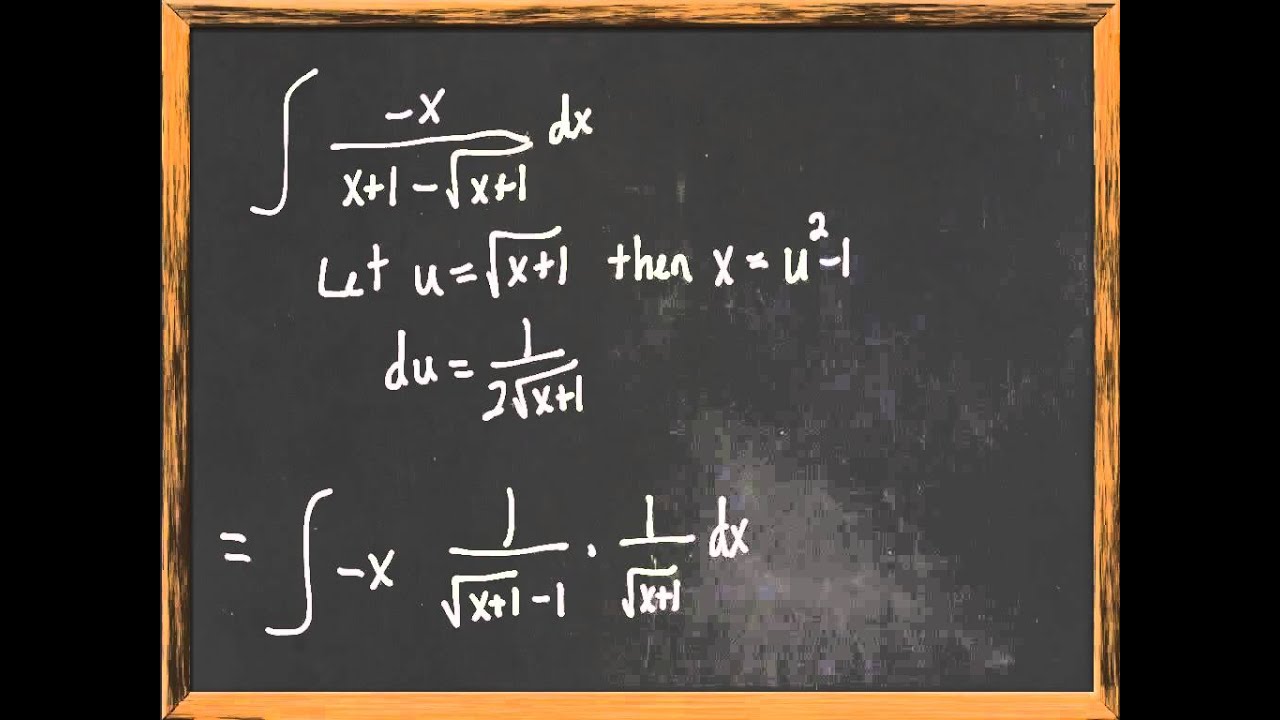 ∫ -x / (x+1 - √(x+1)) dx
Let u = √(x+1) then x = u² - 1
du = 1 / (2√(x+1))
= ∫ -x 1 / (√(x+1) - 1) · 1 / √(x+1) dx